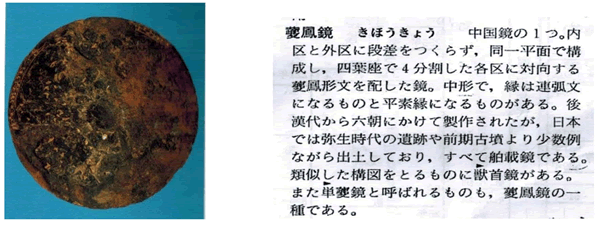 夔鳳鏡　きほうきょう　中国鏡の1つ。内
区と外区に段差をつくらず，同一平面で構
成し，四葉座で4分割した各区に対向する
夔鳳形文を配した鏡。中形で，縁は連弧文
になるものと平素縁になるものがある。後
漢代から六朝にかけて製作されたが，日本
では弥生時代の遺跡や前期古墳より少数例
ながら出土しており，すべて舶載鏡である。
類似した構図をとるものに獣首鏡がある。
また単夔鏡と呼ばれるものも，夔鳳鏡の一
種である。